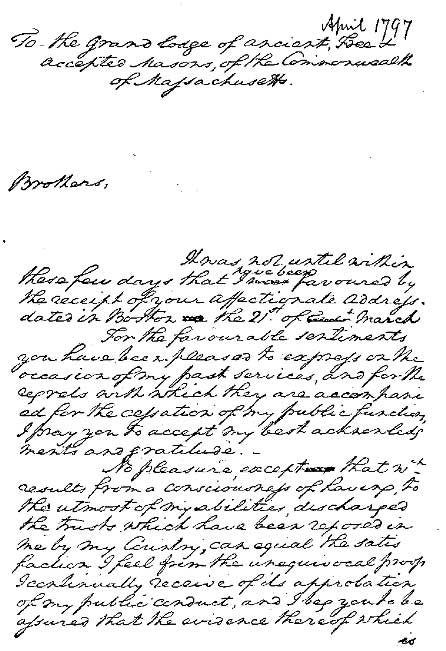 April 1797
To the Grand Lodge of ancient, Free &
accepted Masons, of the Commonwealth
of Massachusetts.
Brothers,
It was not until within
have been
these few days that I favoured by
the receipt of your affectionate Address.
dated in Boston the 21st of March
For the favourable sentiments
you have been pleased to express on the
occasion of my past services, and for the
regrets with which they are accompani
ed for the cessation of my public functions,
I pray you to accept my best acknowledg
ments and gratitude. –
No pleasure, except that wch
results from a consciousness of having, to
the utmost of my abilities, discharged
the trusts which have been reposed in
me by my Country, can equal the satis
faction I feel from the unequivocal proofs
I continually receive of its approbation
of my public conduct, and I beg you to be
assured that the evidence thereof which
is